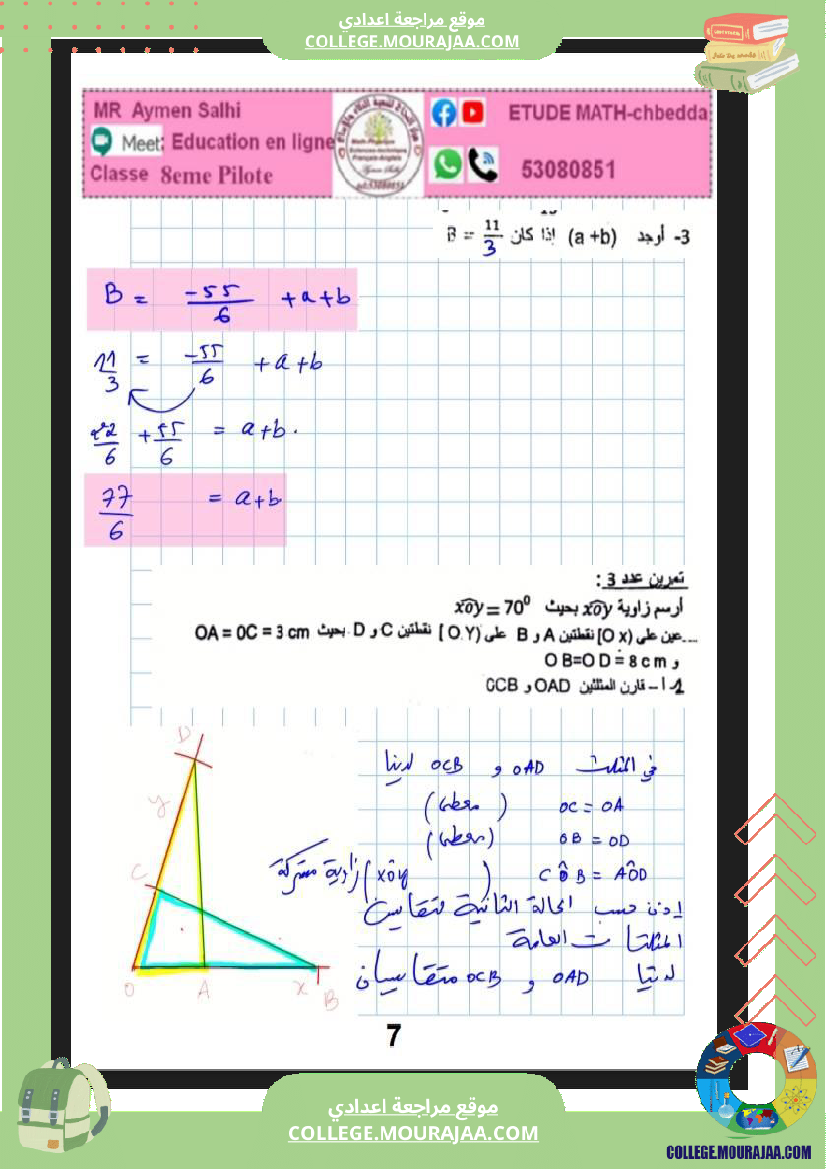 موقع مراجعة اعدادي
COLLEGE.MOURAJAA.COM
MR Aymen Salhi
Meet: Education en ligne
Classe 8eme Pilote
ETUDE MATH-chbedda
53080851
3- أرجد (a+b) إذا كان B = 11/3
B = -55/6 + a + b
11/3 = -55/6 + a + b
22/6 + 55/6 = a + b.
77/6 = a + b
تمرين عدد 3 :
أرسم زاوية xôy بحيث xôy = 70⁰
...عين على [O x) نقطتين A و B على [O Y) نقطتين C و D بحيث OA = OC = 3 cm
و O B=O D = 8 c m
1 أ – قارن المثلثين OAD و OCB
D
y
C
O
A
x
B
في المثلث OAD و OCB لدينا
OC = OA (معطى)
OB = OD (معطى)
CÔB = AÔD (xôy) زاوية مشتركة
إذن حسب الحالة الثانية لتقايس
المثلثات العامة
لدينا OAD و OCB متقايسان
7
موقع مراجعة اعدادي
COLLEGE.MOURAJAA.COM
COLLEGE.MOURAJAA.COM